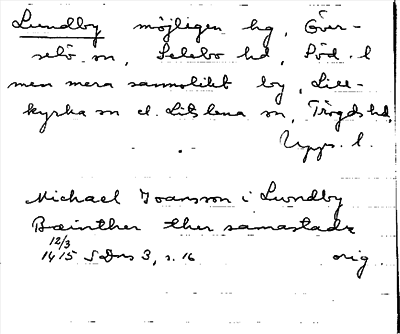 Lundby möjligen hg, Över-
selö sn, Selebo hd, Söd. l
men mera sannolikt by, Lill-
kyrka sn el. Litslena sn, Trögds hd,
Upps. l.
Michael Joansson i Lwndby
Bæinther ther samastadz
12/3
1415 SDns 3, s. 16 orig.